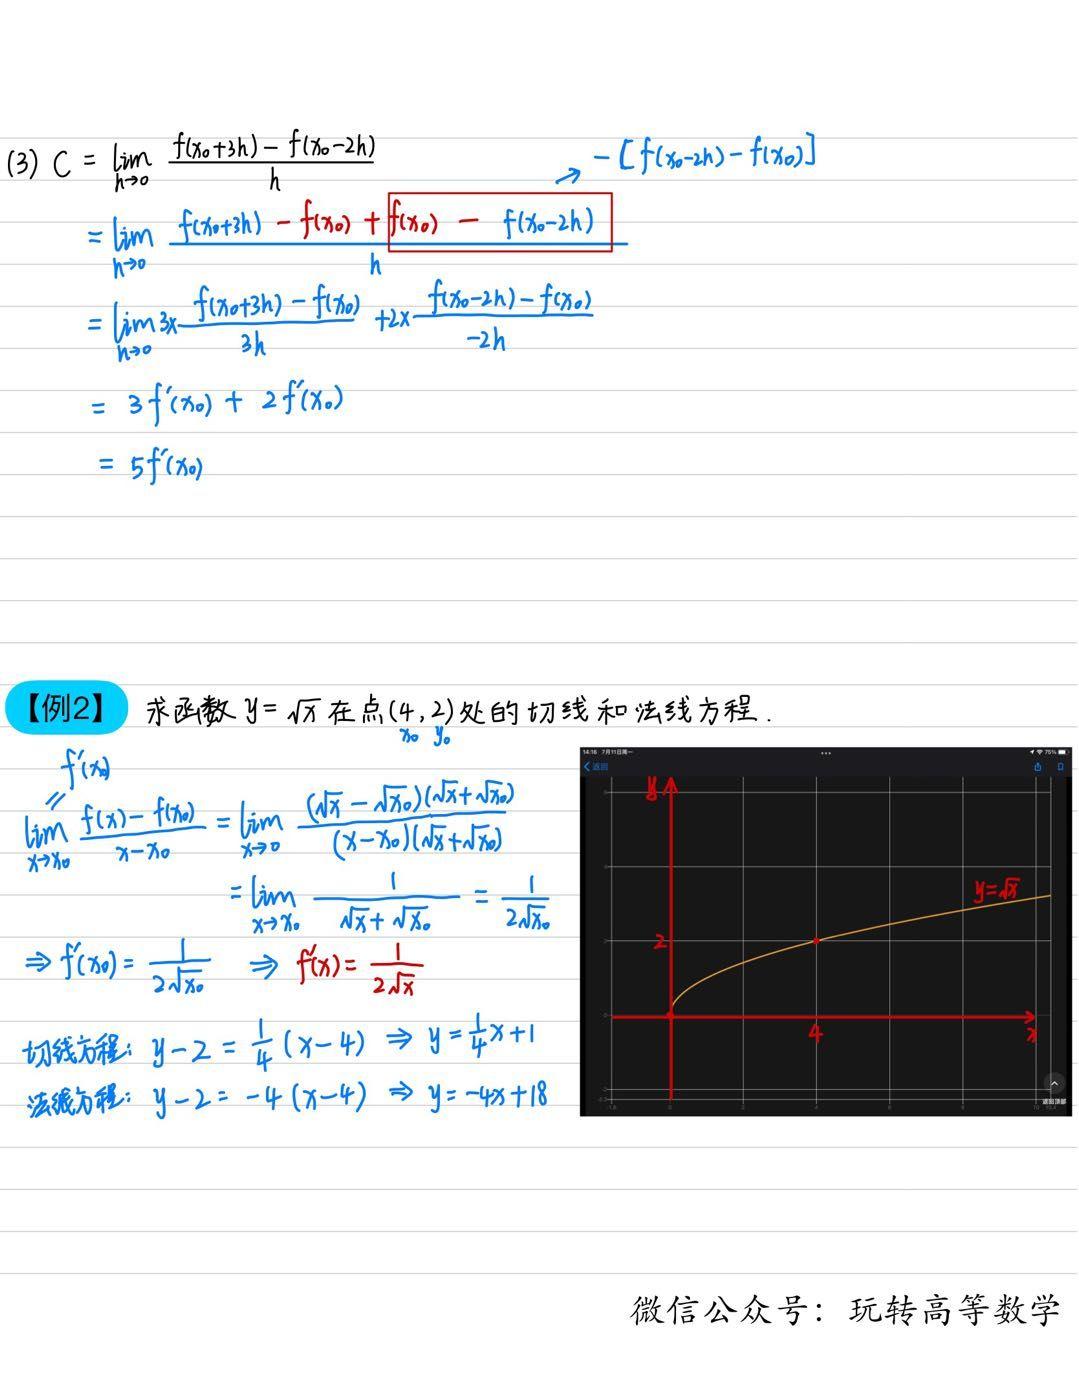 (3) C = lim h→0 (f(x₀+3h) − f(x₀−2h)) / h
→ −[f(x₀−2h) − f(x₀)]
= lim h→0 (f(x₀+3h) − f(x₀) + f(x₀) − f(x₀−2h)) / h
= lim h→0 3× (f(x₀+3h) − f(x₀)) / 3h +2× (f(x₀−2h) − f(x₀)) / −2h
= 3f′(x₀) + 2f′(x₀)
= 5f′(x₀)
【例2】 求函数 y = √x 在点(4, 2)处的切线和法线方程.
x₀ y₀
f′(x₀)
=
lim x→x₀ (f(x) − f(x₀)) / (x − x₀) = lim x→0 (√x − √x₀)(√x + √x₀) / (x − x₀)(√x + √x₀)
= lim x→x₀ 1 / (√x + √x₀) = 1 / 2√x₀
⇒ f′(x₀) = 1 / 2√x₀ ⇒ f′(x) = 1 / 2√x
切线方程: y − 2 = 1/4 (x − 4) ⇒ y = 1/4 x + 1
法线方程: y − 2 = −4 (x − 4) ⇒ y = −4x + 18
14:16 7月11日周一 ••• 75%
返回
y
y=√x
2
4
x
返回顶部
微信公众号：玩转高等数学